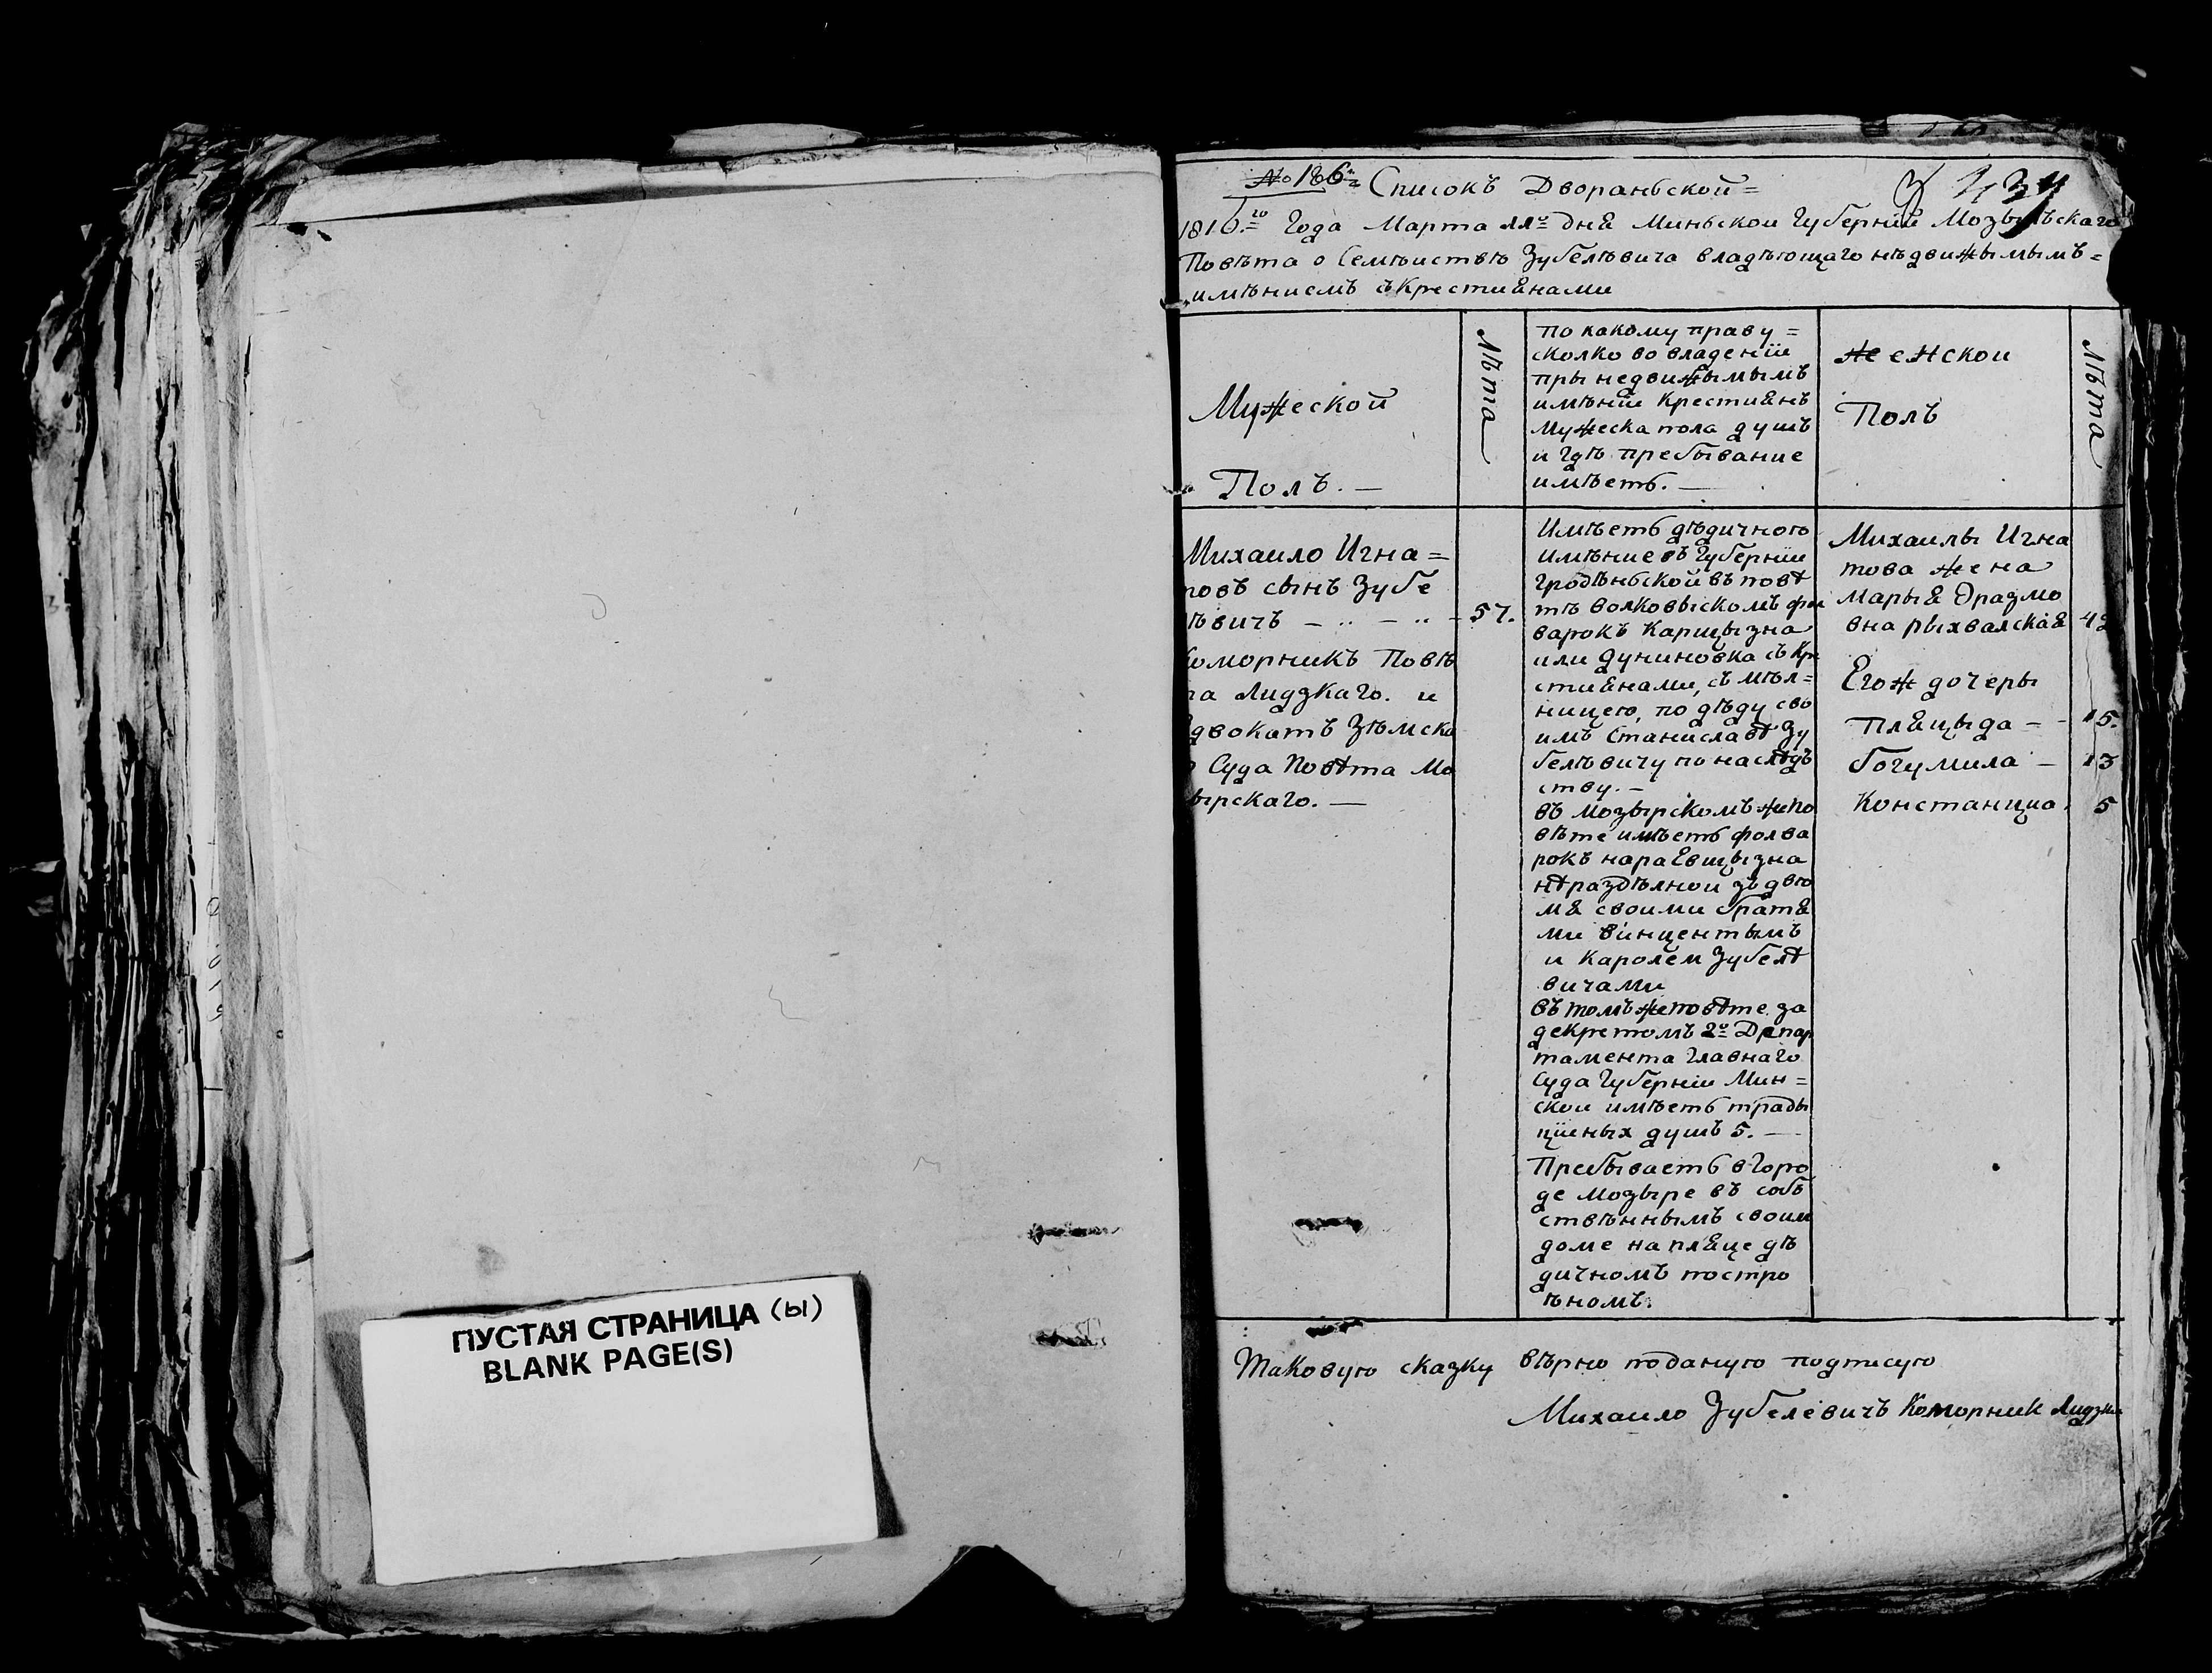 ПУСТАЯ СТРАНИЦА (Ы)
BLANK PAGE(S)
№ 186 Списокъ Дворанской=
Года Марта 11го дня Миньской Губерніи Мозырьскаго
Повѣта о Семѣиствѣ Зубелѣвича владѣющаго нѣдвижымымъ=
имѣниемъ съ Крестиянами
Мужеской
Полъ. —
Лѣта
по какому праву=
сколко во владеніи
пры недвижымымъ
имѣніи Крестиянъ
Мужеска пола душъ
и гдѣ пребывание
имѣетъ. —
Женской
Полъ
Лѣта
Михаило Игна=
товъ сынъ Зубе
лѣвичъ — .. — .. — 57.
Коморникъ Повѣ
та Лидзкаго. и
Адвокатъ Зѣмска
Суда Повѣта Мо
зырскаго. —
Имѣетъ дѣдичного
Имѣние въ Губерніи
Гродѣньской въ повѣ
тѣ волковыскомъ фол
варокъ Каршызна
или Дуниновка съ Кре
стиянами, съ мѣл=
ницею, по дѣду сво
имъ Станиславѣ Зу
белѣвичу по наслѣдъ
ству. —
въ мозырскомъ же по
вѣте имѣетъ фолва
рокъ
нѣраздѣлной зъ двю
мя своими братя
ми винцентымъ
и Каролем Зубелѣ
вичами
въ томъ же повѣте за
декретомъ 2го Депар
тамента Главнаго
Суда Губерніи Мин=
ской имѣетъ трады
ційных душъ 5. —
Пребываетъ в Горо
де Мозыре въ собъ
ствѣннымъ своим
доме на пляце дѣ
дичномъ постро
ѣномъ.
Михаилы Игна
това жена
Марыя Эразмо
вна Рыхвалская
Егож дочеры
Пляцыда — - 15.
Богумила — 13
Констанциа. 5
Таковую сказку вѣрно поданую подписую
Михаило Зубелевичъ Коморник Лидзки